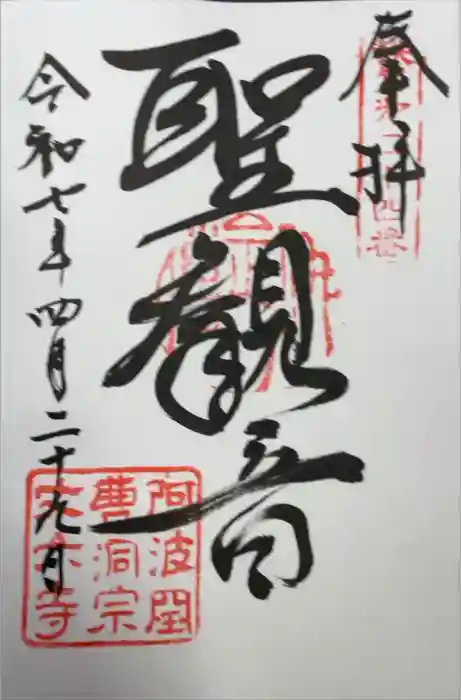 奉拝
聖観音
令和七年四月二十九日
阿波国
曹洞宗